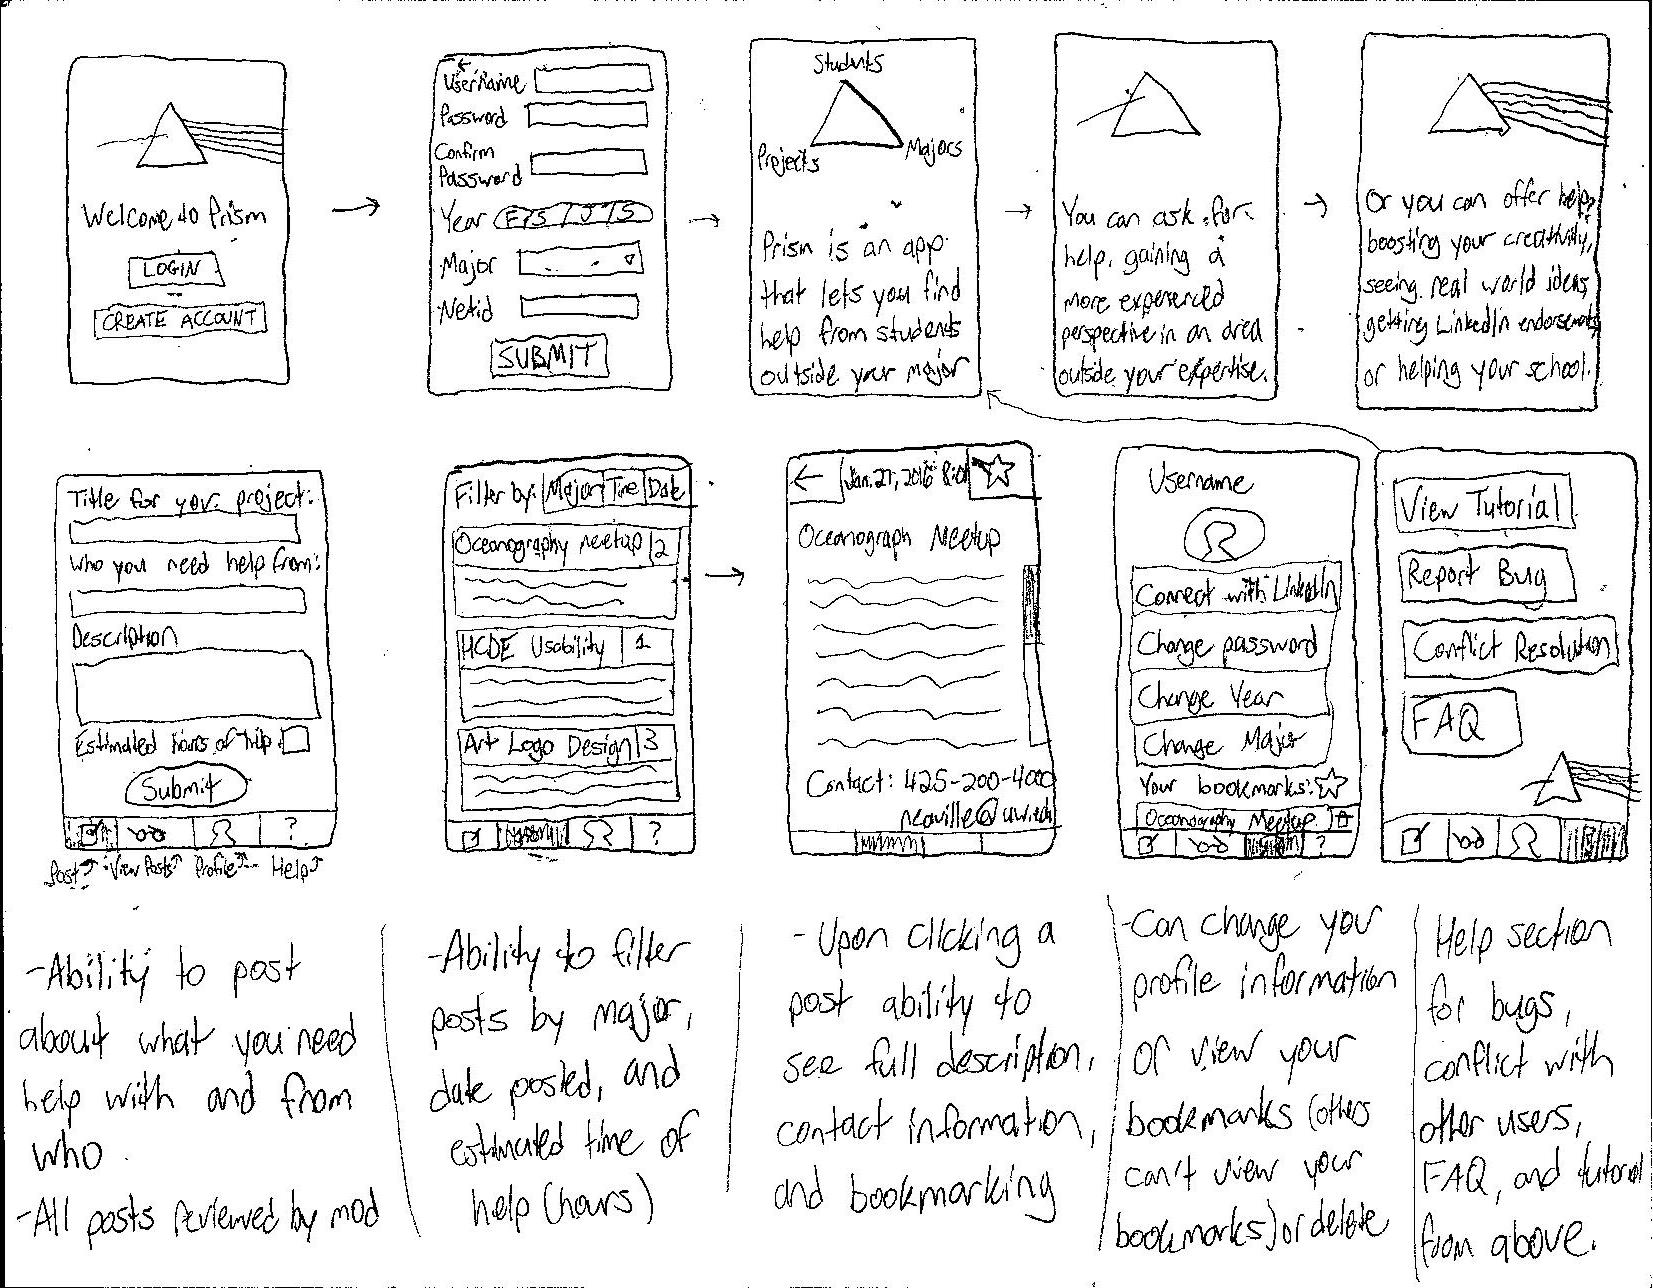 Welcome to Prism
LOGIN
CREATE ACCOUNT
Username
Password
Confirm
Password
Year F/S/J/S
Major
Netid
SUBMIT
Students
Projects
Majors
Prism is an app
that lets you find
help from students
outside your major
You can ask for
help, gaining a
more experienced
perspective in an area
outside your expertise.
Or you can offer help,
boosting your creativity,
seeing real world ideas,
getting LinkedIn endorsements
or helping your school.
Title for your project:
Who you need help from:
Description
Estimated hours of help:
Submit
?
Post
View Posts
Profile
Help
Filter by: Major Time Date
Oceanography meetup 2
HCDE Usability 1
Art Logo Design 3
?
Jan. 27, 2016
Oceanograph Meetup
Contact: 425-200-4000
neaville@uw.edu
Username
Connect with LinkedIn
Change password
Change Year
Change Major
Your bookmarks:
Oceanography Meetup
?
View Tutorial
Report Bug
Conflict Resolution
FAQ
-Ability to post
about what you need
help with and from
who.
-All posts reviewed by mod
-Ability to filter
posts by major,
date posted, and
estimated time of
help (hours)
-Upon clicking a
post ability to
see full description,
contact information,
and bookmarking
-Can change your
profile information
or view your
bookmarks (others
can't view your
bookmarks) or delete
Help section
for bugs,
conflict with
other users,
FAQ, and tutorial
from above.